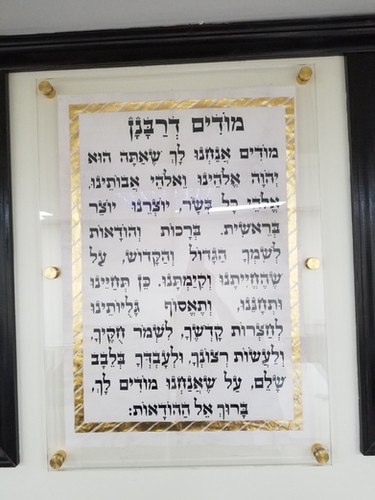 מוֹדִים דְרַבָּנָן
מוֹדִים אֲנַחְנוּ לָךְ שָׁאַתָּה הוּא
יְהֹוָה אֱלֹהֵינוּ וֵאלֹהֵי אֲבוֹתֵינוּ.
אֱלֹהֵי כָל בָּשָׂר, יוֹצְרֵנוּ יוֹצֵר
בְּרֵאשִׁית. בְּרָכוֹת וְהוֹדָאוֹת
לְשִׁמְךָ הַגָּדוֹל וְהַקָּדוֹשׁ, עַל
שֶׁהֶחֱיִיתָנוּ וְקִיַּמְתָּנוּ. כֵּן תְּחַיֵּינוּ
וּתְחָנֵּנוּ, וְתֶאֱסוֹף גָּלֻיּוֹתֵינוּ
לְחַצְרוֹת קָדְשֶׁךָ, לִשְׁמֹר חֻקֶּיךָ,
וְלַעֲשׂוֹת רְצוֹנְךָ, וּלְעָבְדְּךָ בְּלֵבָב
שָׁלֵם, עַל שֶׁאֲנַחְנוּ מוֹדִים לָךְ,
בָּרוּךְ אֵל הַהוֹדָאוֹת: